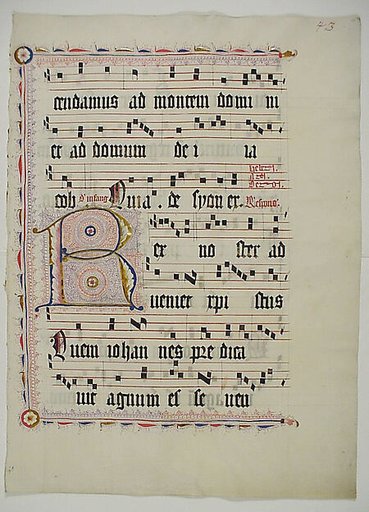 43
cendamus ad montem domi ni
et ad domum de i ia
cob Quia. de syon ex.
R ex no ster ad
ueniet xpi stus
Quem iohan nes pre dica
uit agnum es se uen